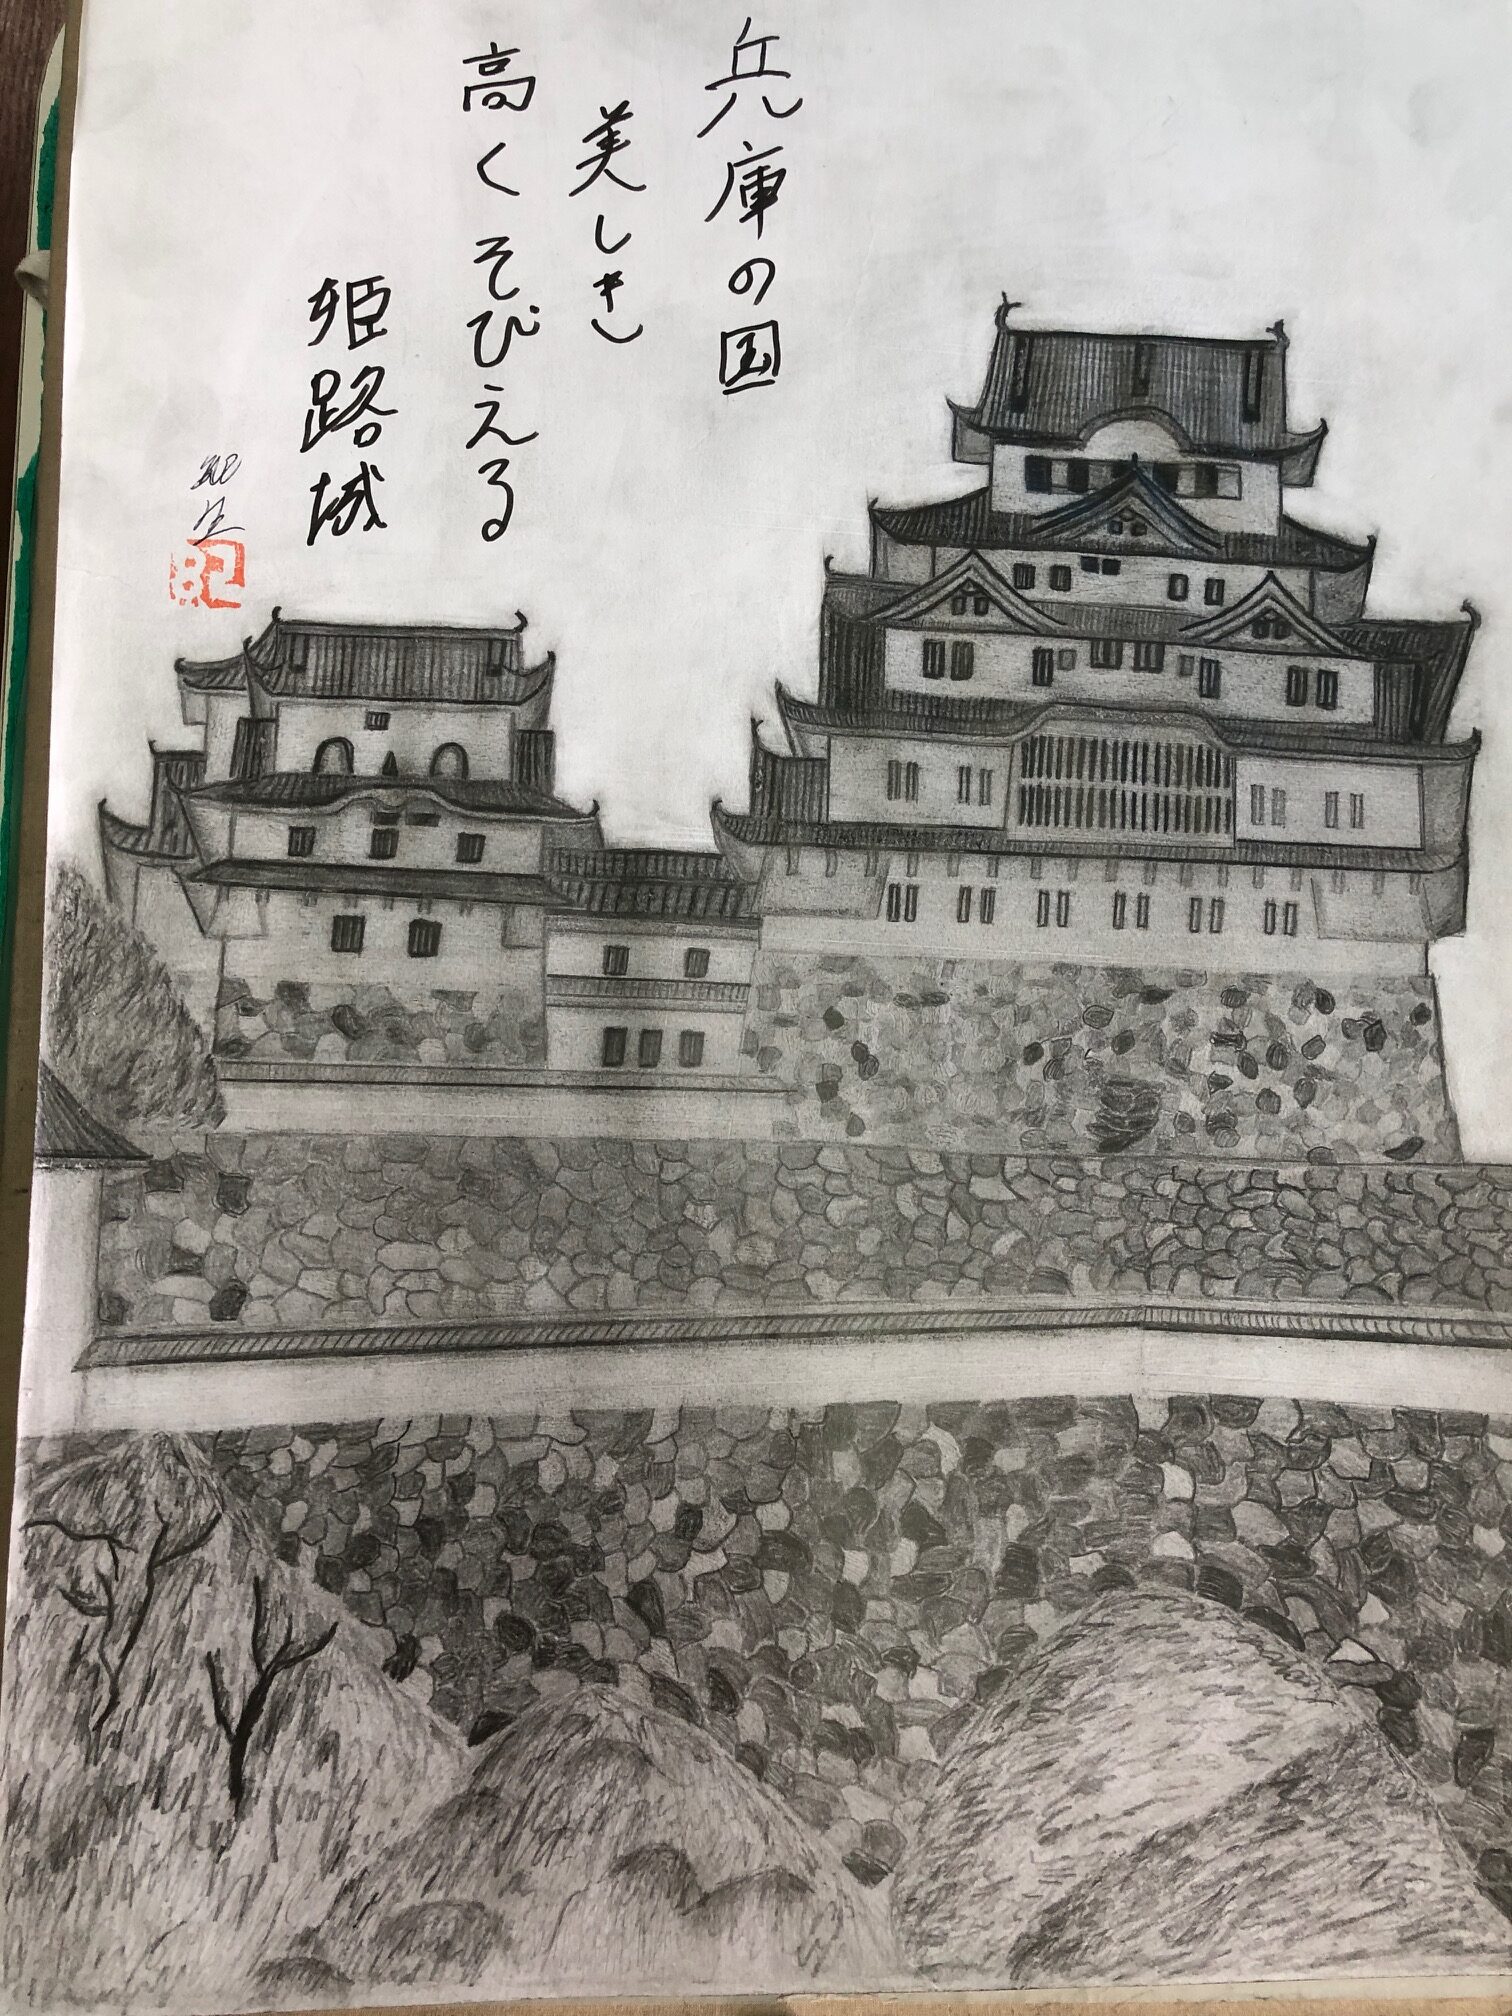 兵庫の国
美しき
高くそびえる
姫路城